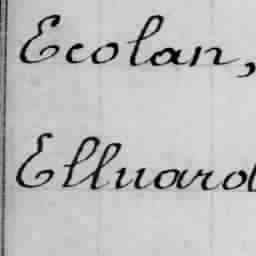 Ecolan,
Elluard